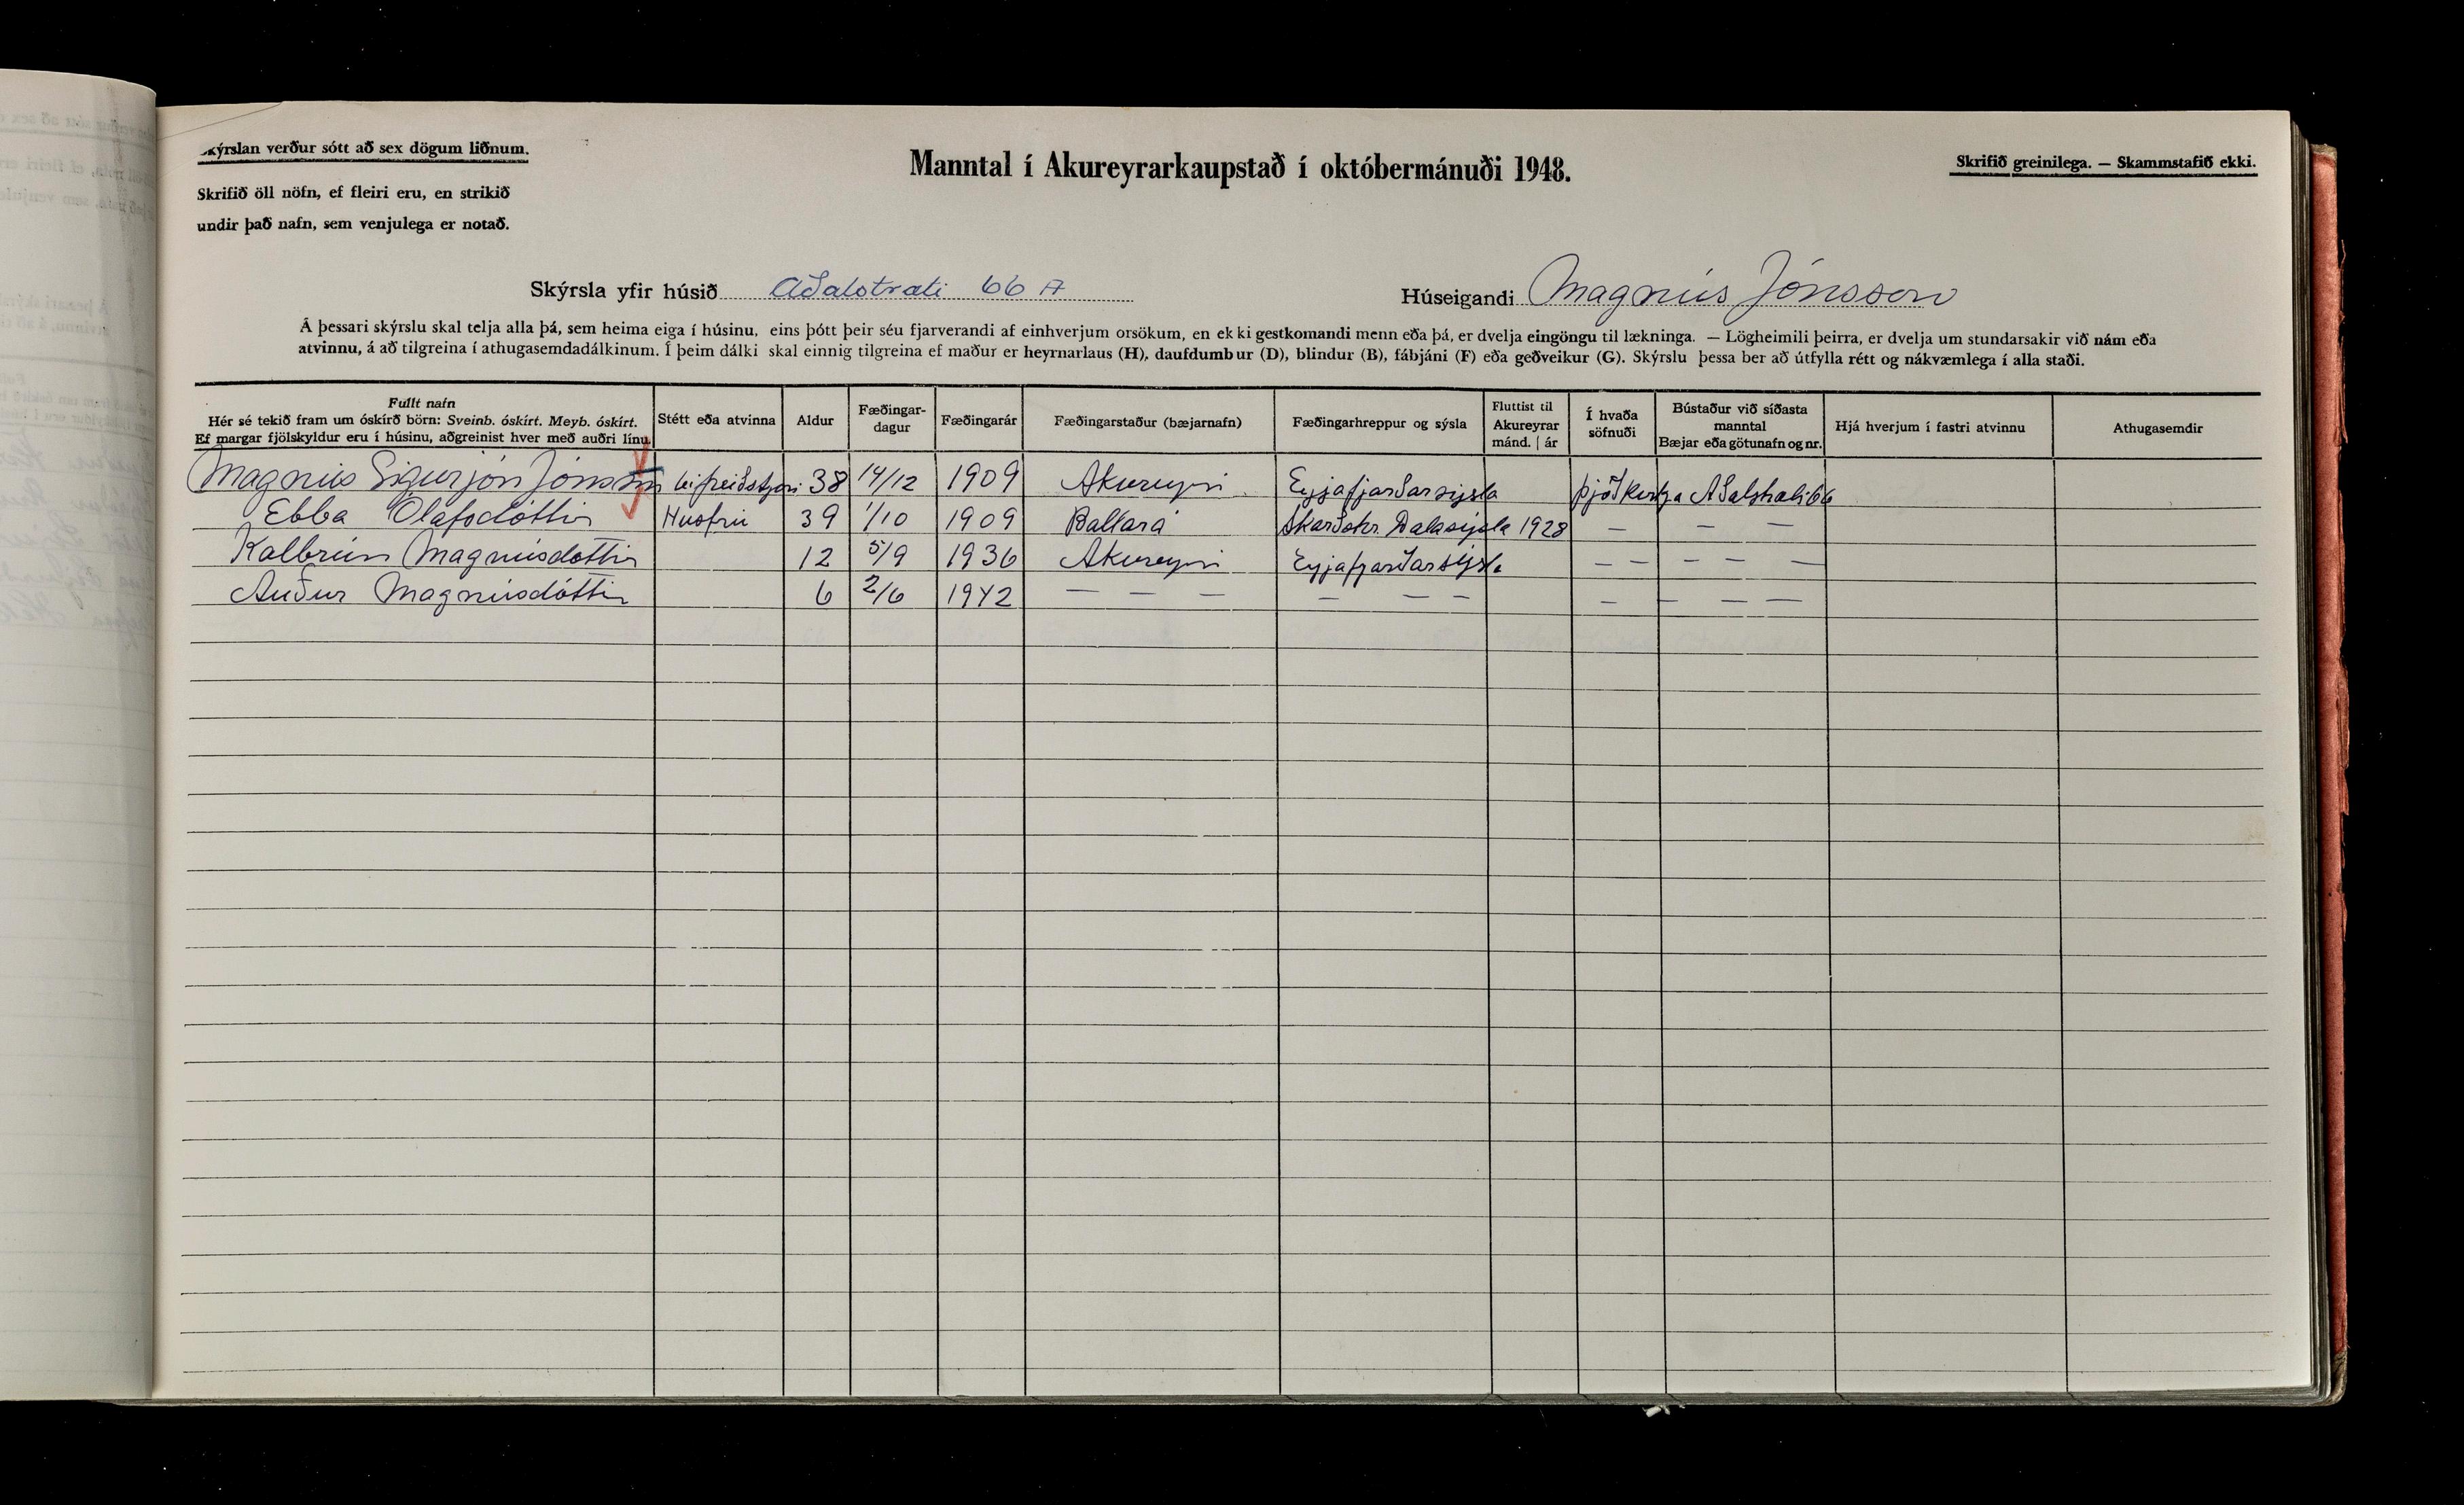 Skýrslan verður sótt að sex dögum liðnum.
Manntal í Akureyrarkaupstað í októbermánuði 1948.
Skrifið greinilega. — Skammstafið ekki.
Skrifið öll nöfn, ef fleiri eru, en strikið
undir það nafn, sem venjulega er notað.
Skýrsla yfir húsið Aðalstræti 66 A
Húseigandi Magnús Jónsson
Á þessari skýrslu skal telja alla þá, sem heima eiga í húsinu, eins þótt þeir séu fjarverandi af einhverjum orsökum, en ekki gestkomandi menn eða þá, er dvelja eingöngu til lækninga. — Lögheimili þeirra, er dvelja um stundarsakir við nám eða
atvinnu, á að tilgreina í athugasemdadálkinum. Í þeim dálki skal einnig tilgreina ef maður er heyrnarlaus (H), daufdumbur (D), blindur (B), fábjáni (F) eða geðveikur (G). Skýrslu þessa ber að útfylla rétt og nákvæmlega í alla staði.
Fullt nafn
Hér sé tekið fram um óskírð börn: Sveinb. óskírt. Meyb. óskírt.
Ef margar fjölskyldur eru í húsinu, aðgreinist hver með auðri línu.
Stétt eða atvinna
Aldur
Fæðingar-
dagur
Fæðingarár
Fæðingarstaður (bæjarnafn)
Fæðingarhreppur og sýsla
Fluttist til
Akureyrar
mánd. | ár
Í hvaða
söfnuði
Bústaður við síðasta
manntal
Bæjar eða götunafn og nr.
Hjá hverjum í fastri atvinnu
Athugasemdir
Magnús Sigurjón Jónsson bifreiðstjóri 38 14/12 1909 Akureyri Eyjafjarðarsýsla þjóðkirkja Aðalstræti 66
Ebba Ólafsdóttir Húsfrú 39 1/10 1909 Ballará Skarðshr. Dalasýsla 1928 — — —
Kolbrún Magnúsdóttir 12 5/9 1936 Akureyri Eyjafjarðarsýsla — — — — —
Auður Magnúsdóttir 6 2/6 1942 — — — — — — — — — —